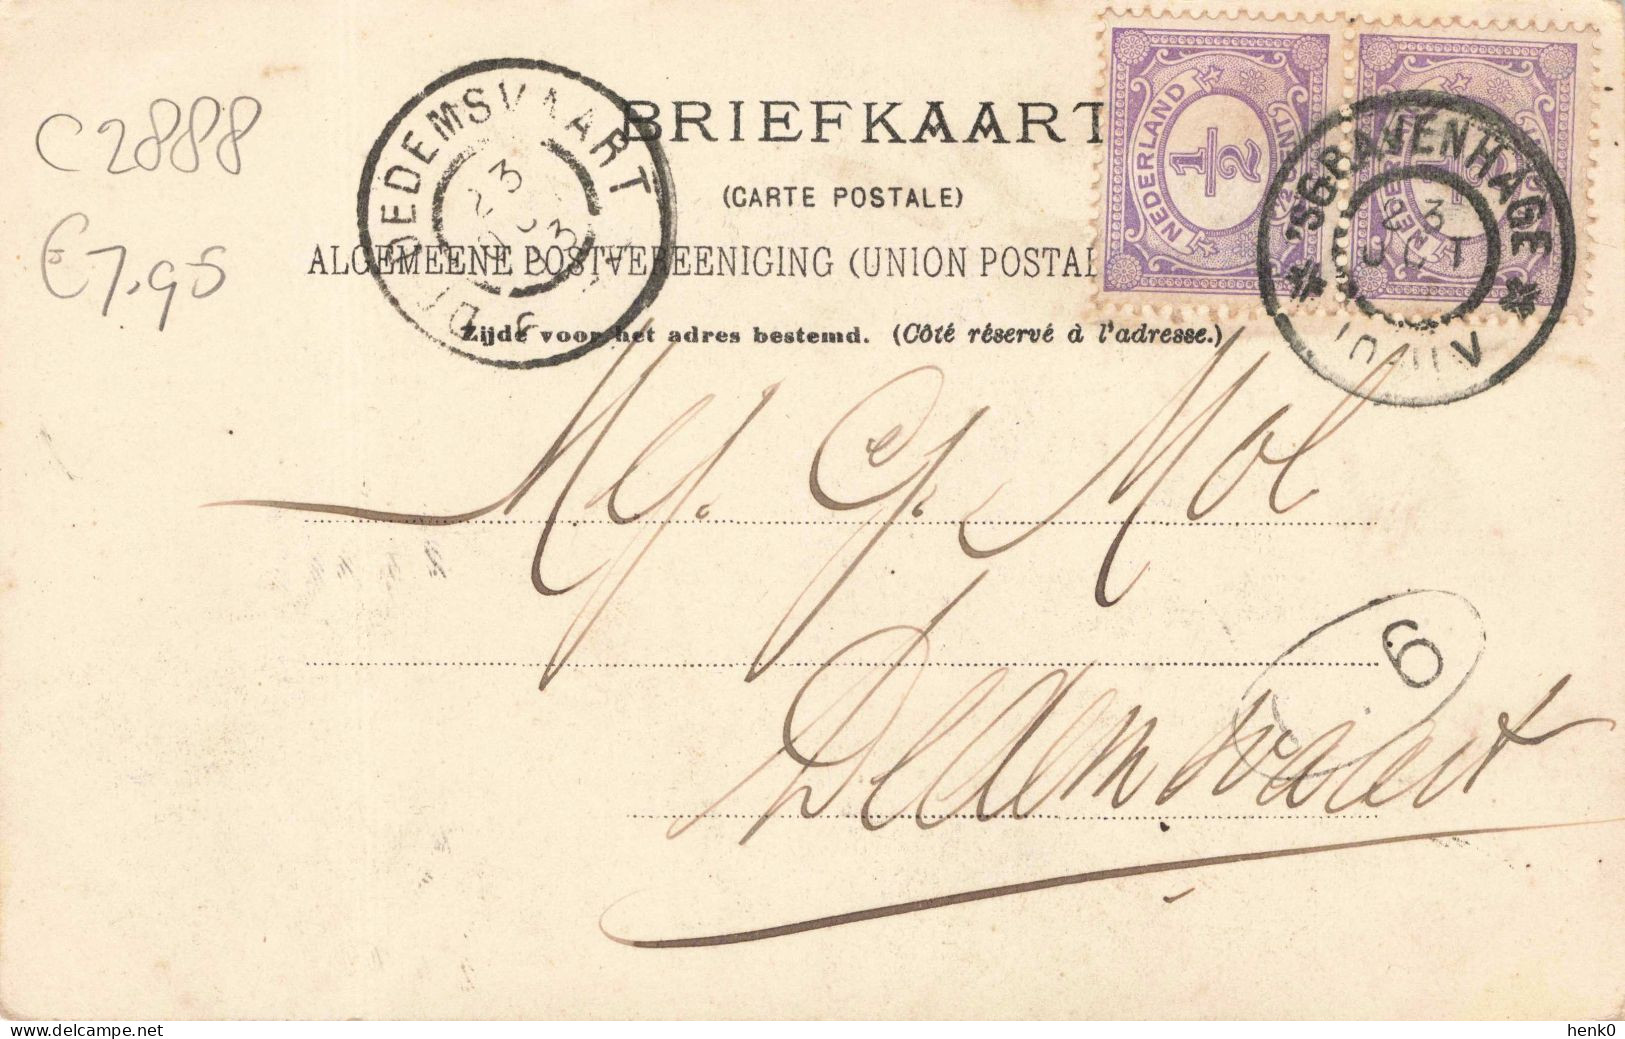 C2888
€7.95
DEDEMSVAART
23
BRIEFKAART
(CARTE POSTALE)
ALGEMEENE POSTVEREENIGING (UNION POSTAL
Zijde voor het adres bestemd. (Côté réservé à l'adresse.)
NEDERLAND
1/2
'SGRAVENHAGE
3
OCT
G. Mol
Dedemsvaart
6
henk0